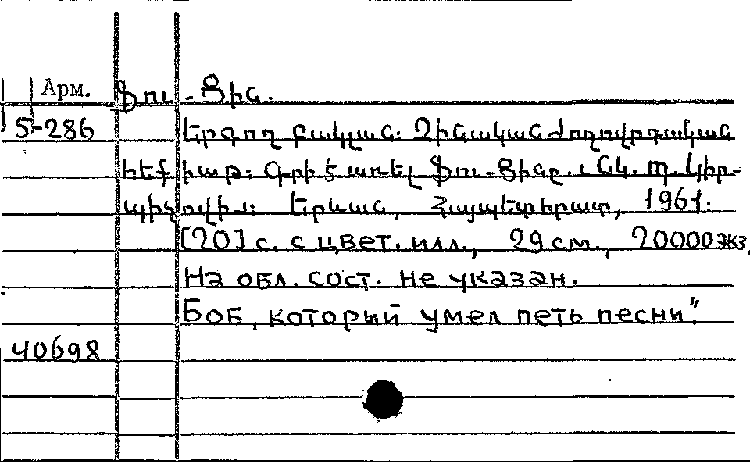 Арм. Ֆու-Ցին.
5-286 Երգող բակլան: Չինական ժողովրդական
հեքիաթ: Գրի է առել Ֆու-Ցինը.: Նկ. Պ. Կիր-
պիչովի: Երևան, Հայպետհրատ, 1961.
[20] с. с цвет. илл., 29 см., 20000 экз.
На обл. сост. не указан.
Боб, который умел петь песни".
40698